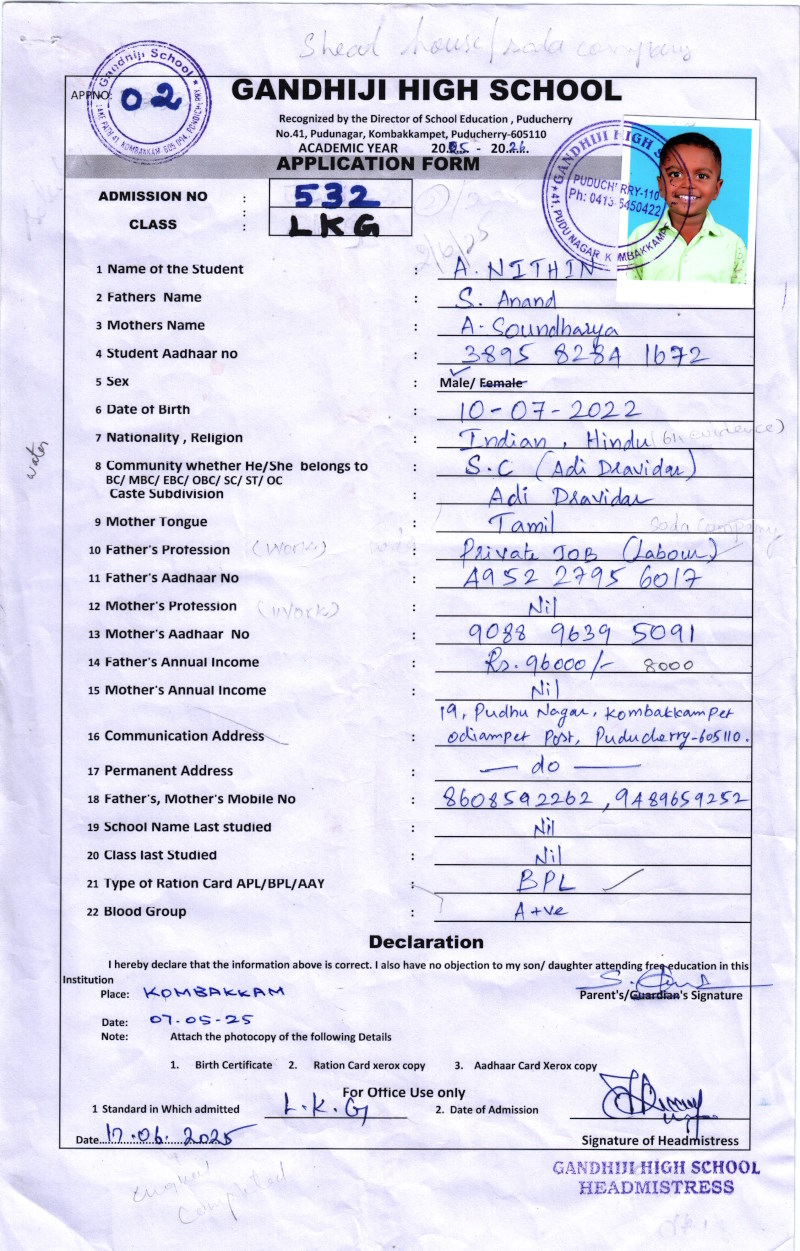 Sheal house/soda company
Gandhiji School
LAKE PATH 41, KOMBAKKAM 605 094, PONDICHERRY
APP NO: 02
GANDHIJI HIGH SCHOOL
Recognized by the Director of School Education , Puducherry
No.41, Pudunagar, Kombakkampet, Puducherry-605110
ACADEMIC YEAR 2025 - 2026.
APPLICATION FORM
GANDHIJI HIGH S
PUDUCH RRY-110
Ph: 0413-6450422
41, PUDU NAGAR KOMBAKKAMPE
ADMISSION NO : 532
CLASS : LKG
2/6/25
1 Name of the Student : A. NITHIN
2 Fathers Name : S. Anand
3 Mothers Name : A. Soundharya
4 Student Aadhaar no : 3895 8284 1672
5 Sex : Male/ Female
6 Date of Birth : 10-07-2022
7 Nationality , Religion : Indian , Hindu
8 Community whether He/She belongs to : S.C (Adi Dravidar)
BC/ MBC/ EBC/ OBC/ SC/ ST/ OC
Caste Subdivision Adi Dravidar
9 Mother Tongue : Tamil soda company
10 Father's Profession (work) : Private JOB (Labour)
11 Father's Aadhaar No : 4952 2795 6017
12 Mother's Profession (work) : Nil
13 Mother's Aadhaar No : 9088 9639 5091
14 Father's Annual Income : Rs. 96000/- 8000
15 Mother's Annual Income : Nil
19, Pudhu Nagar, Kombakkampet
16 Communication Address : odiampet Post, Puducherry-605110.
17 Permanent Address : — do —
18 Father's, Mother's Mobile No : 8608592262 , 9489659252
19 School Name Last studied : Nil
20 Class last Studied : Nil
21 Type of Ration Card APL/BPL/AAY : BPL
22 Blood Group : A +ve
water
Declaration
I hereby declare that the information above is correct. I also have no objection to my son/ daughter attending free education in this
Institution
Place: KOMBAKKAM
Parent's/Guardian's Signature
Date: 07-05-25
Note: Attach the photocopy of the following Details
1. Birth Certificate 2. Ration Card xerox copy 3. Aadhaar Card Xerox copy
For Office Use only
1 Standard in Which admitted L.K.G 2. Date of Admission
Date 17.06.2025
Signature of Headmistress
GANDHIJI HIGH SCHOOL
HEADMISTRESS
completed